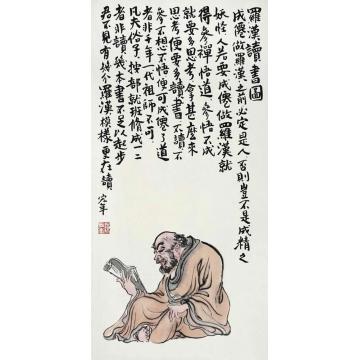 羅漢讀書圖
成僊做羅漢之前必定是人否則豈不是成精之
妖怪人若要成僊做羅漢就
得參禪悟道參悟不成
就要多思考拿甚麼來
思考便要多讀書不讀不
參不想不悟便可成僊道
者非千年一代祖師不可
凡夫俗子按部就班修成一二
者非讀幾本書不足以起步
君不見有羅漢模樣還在讀